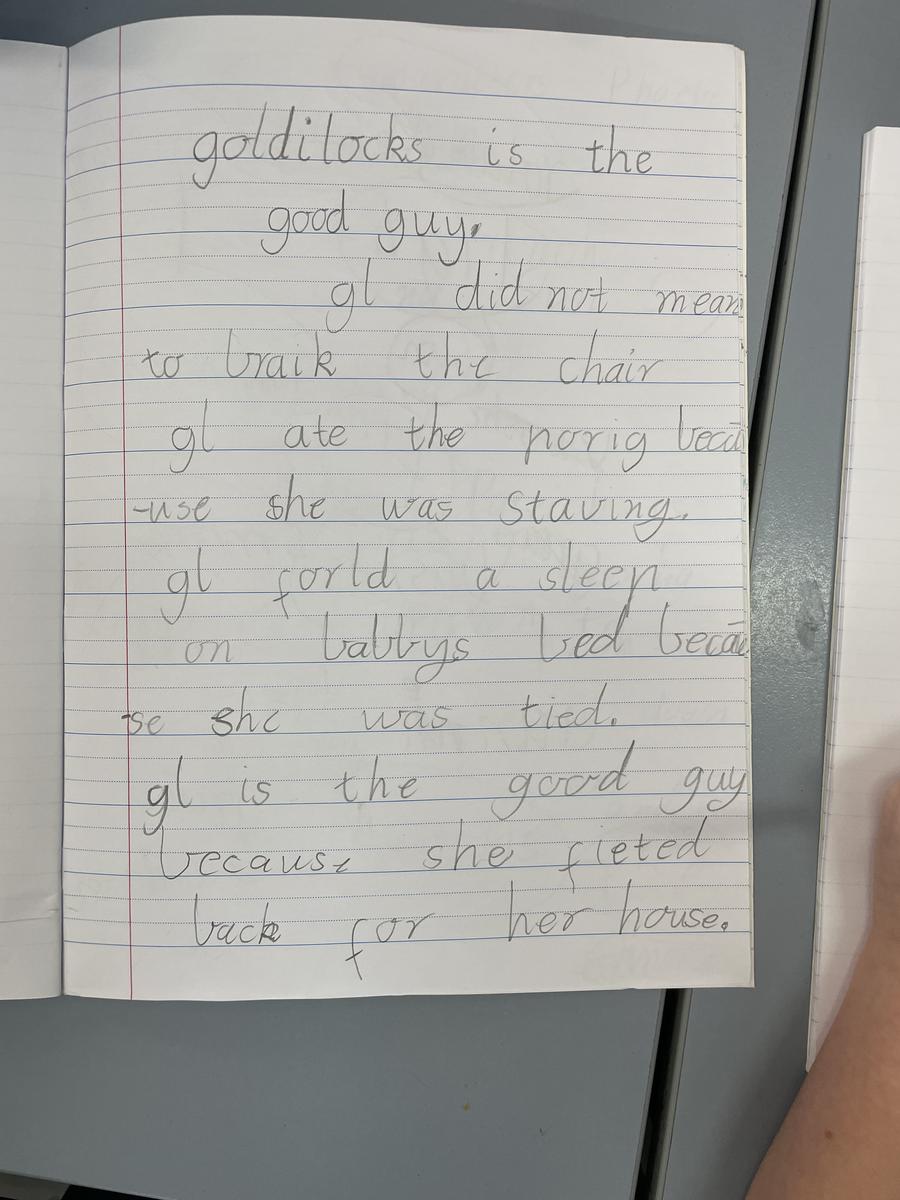 goldilocks is the
good guy.
gl did not mean
to braik the chair
gl ate the porig beca
-use she was staving.
gl forld a sleep
on babbys bed becau
-se she was tied.
gl is the good guy
because she fieted
back for her house.